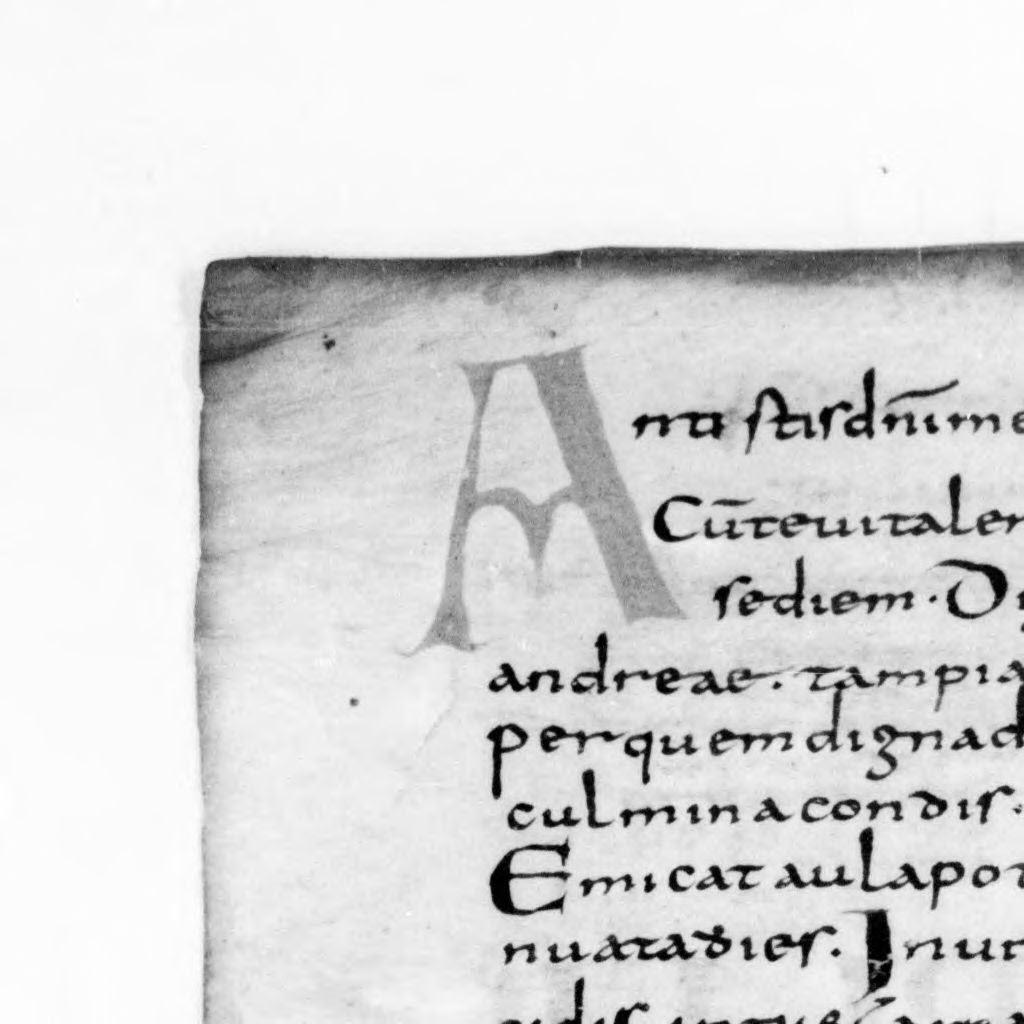 Anti stis dnī me
Cū te ui tal er
sediem · D
andreae · tam pia
per quem digna d
culmina condis ·
Emicat aula pot
nuata dies · In ur